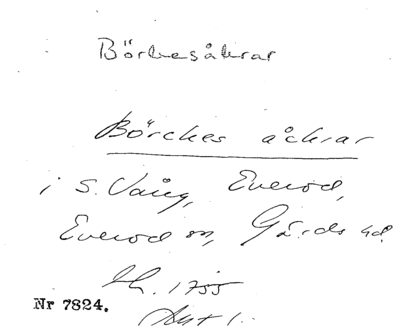 Börkesåkrar
Börckes åckrar
i S. Vång, Everöd,
Everöd sn, Gärds hd.
1755
Nr 7824.